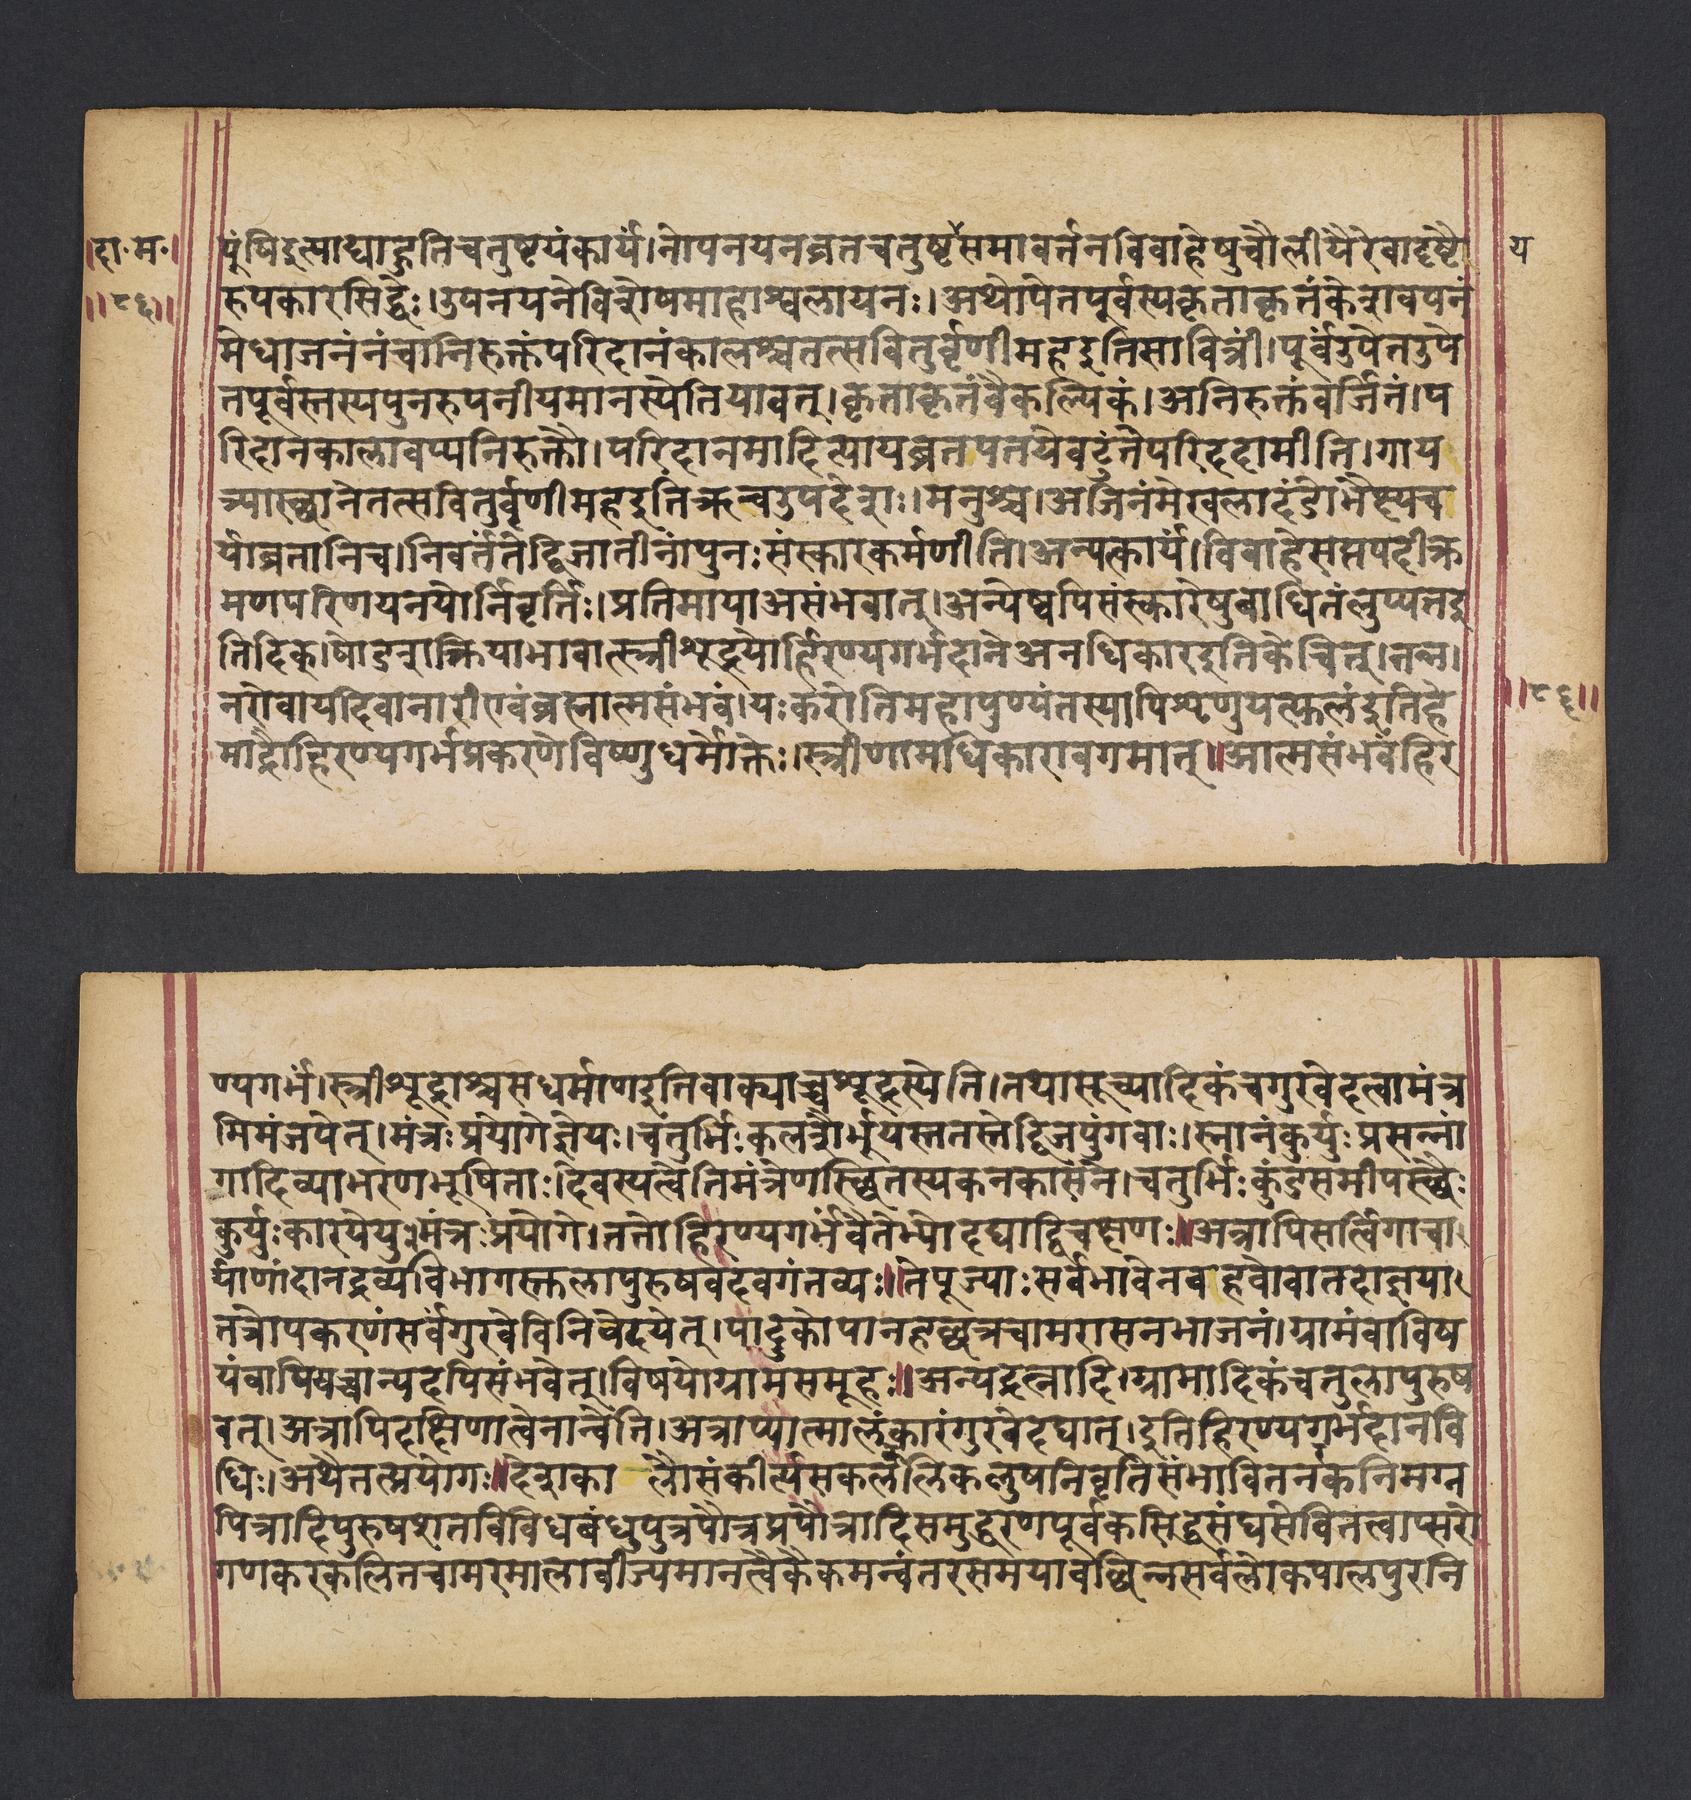 दा॰म॰
॥८६॥
यूंषिइत्याद्याहुतिचतुष्टयंकार्यं।नोपनयनव्रतचतुष्टसमावर्त्तनविवाहेषुचौलीयैरेवादृष्टै
य
रुपकारसिद्धेः।उपनयनेविशेषमाहाश्वलायनः।अथोपेतपूर्वस्यकृताकृतंकेशवपनं
मेधाजननंचानिरुक्तंपरिदानंकालश्चतत्सवितुर्वृणीमहइतिसावित्रीं।पूर्वंउपेतउपे
तपूर्वस्तस्यपुनरुपनीयमानस्येतियावत्।कृताकृतंवैकल्पिकं।अनिरुक्तंवर्जितं।प
रिदानकालावप्यनिरुक्तौ।परिदानमादित्यायव्रतपतयेवटुंतैपरिददामीति।गाय
त्र्यास्छानेतत्सवितुर्वृणीमहइतिऋत्वउपदेशः।मनुश्च।अजिनंमेखलादंडोभैक्ष्यच
र्याव्रतानिच।निवर्तंतेद्विजातीनांपुनःसंस्कारकर्मणीति।अन्यत्कार्यं।विवाहेसप्तपदीक्र
मणपरिणयनयोर्निवृर्तिः।प्रतिमायाअसंभवात्।अन्येष्वपिसंस्कारेषुबाधितंलुप्यतइ
तिदिक्।षोडशक्रियाभावात्स्त्रीशूद्रयोर्हिरण्यगर्भदानेअनधिकारइतिकेचित्।तन्न।
नरोवायदिवानारीएवंब्रह्मात्मसंभवं।यःकरोतिमहापुण्यंतस्यापिशृणुयत्फलंइतिहे
॥८६॥
माद्रौहिरण्यगर्भप्रकरणेविष्णुधर्मोक्तेः।स्त्रीणामधिकारावगमात्॥आत्मसंभवंहिर
ण्यगर्भं।स्त्रीशूद्राश्चसधर्माणइतिवाक्याच्चशूद्रस्येति।तथासूच्यादिकंचगुरवेदत्वामंत्र
मिमंजपेत्।मंत्रःप्रयोगेज्ञेयः।चतुर्भिःकलशैर्भूयस्ततस्तेद्विजपुंगवाः।स्नानंकुर्युःप्रसन्नां
गादिव्याभरणभूषिताः।दिवस्यत्वेतिमंत्रेणस्छितस्यकनकासने।चतुर्भिःकुंडसमीपस्छैः
कुर्युःकारयेयुः।मंत्रःप्रयोगे।ततोहिरण्यगर्भंवैतेभ्योदद्याद्विचक्षणः॥अत्रापिसर्त्विगाचा
र्याणांदानद्रव्यविभागस्तुलापुरुषवदवगंतव्यः॥तेपूज्याःसर्वभावेनबहवोवातदाज्ञया।
तत्रोपकरणंसर्वंगुरवेविनिवेदयेत्।पादुकोपानहछत्रचामरासनभाजनं।ग्रामंवाविष
यंवापियच्चान्यदपिसंभवेत्।विषयोग्रामसमूहः॥अन्यद्रत्नादि।ग्रामादिकंचतुलापुरुष
वत्।अत्रापिदक्षिणात्वेनान्वेति।अत्राप्यात्मालंकारंगुरवेदद्यात्।इतिहिरण्यगर्भदानवि
धिः।अथैतत्प्रयोगः॥देशकालौसंकीर्त्यसकलकलिकलुषनिवृतिसंभावितनर्कनिमग्न
पित्रादिपुरुषशतविविधबंधुपुत्रपौत्रप्रपौत्रादिसमुद्धरणपूर्वकसिद्धसंघसेवितत्वाप्सरो
गणकरकलितचामरमालावीज्यमानत्वैकैकमन्वंतरसमयावछिन्नसर्वलोकपालपुरनि